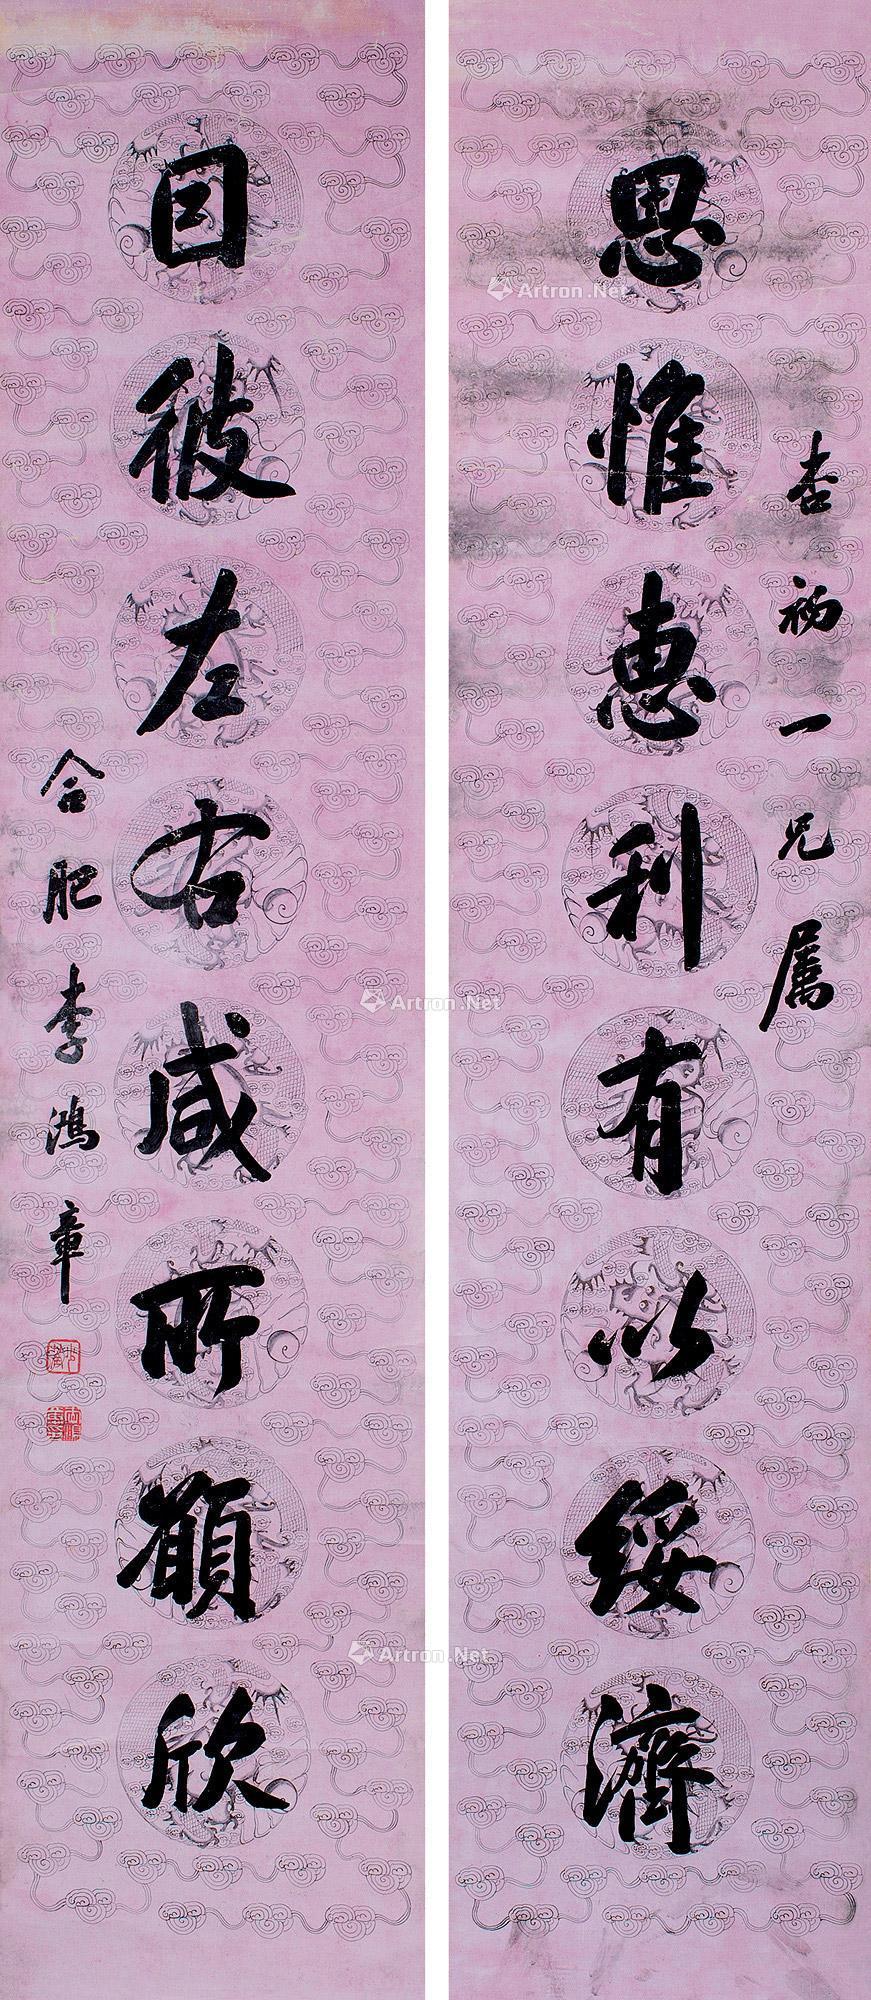 思惟惠利有以綏濟
杏一兄屬
囙彼左右咸所願欣
合肥李鴻章
Artron.Net
Artron.Net
Artron.Net